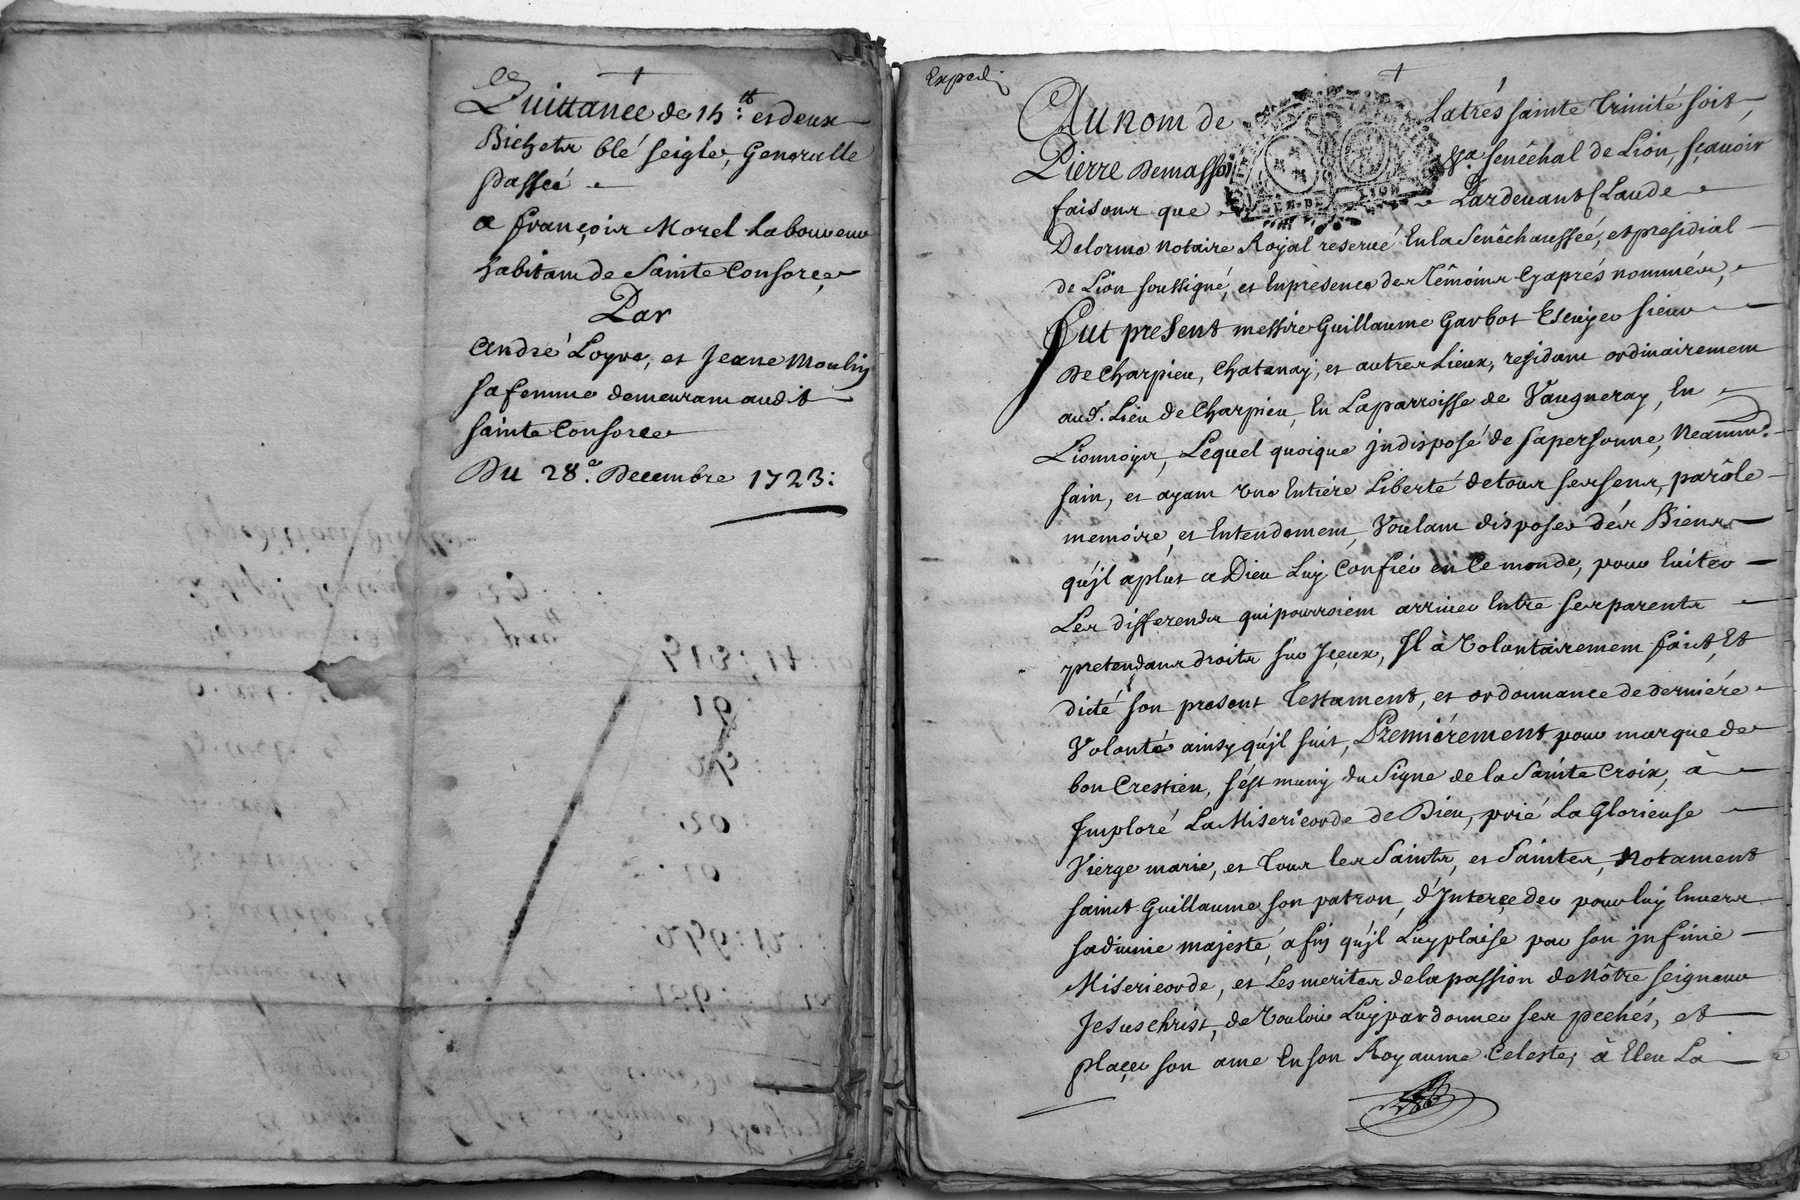 Quittance de 15.tt et deux
Bichets blé seigle, Generalle
passée
a françois Morel Laboureur
habitant de Sainte Consorce
Par
André Loyve, et Jeane Moulin
sa femme demeurant audit
sainte Consorce
Du 28.e Decembre 1723:
Exped.
Au nom de La trés sainte Trinité soit,
Pierre Demasso senêchal de Lion, sçavoir
faisons que Pardevant Claude
Delorme notaire Royal reservé En la senêchaussée, et presidial
de Lion soussigné, et En presence des Têmoins Cy aprés nommés,
Fut present messire Guillaume Garbot Escuyer sieur
de Charpieu, Chatanay, et autres Lieux, residant ordinairement
aud. Lieu de Charpieu, En La parroisse de Vaugneray, En
Lionnoys, Lequel quoique jndisposé de sa personne, Neamm.t
sain, et ayant une Entiére Liberté de tous ses sens, parôle
memoire, et Entendement, Voulant disposer dés Biens
qu'jl a plut a Dieu Luy Confier en Ce monde, pour Eviter
Les differends qui pourroient arriver Entre ses parents
pretendans droits sur Jçeux, Jl à Volontairement fait, Et
dicté son present Testament, et ordonnance de derniére
Volonté ainsy qu'jl suit, Premiérement pour marque de
bon Crestien, s'ést muny du Signe de la Sainte Croix, à
Jmploré La Misericorde de Dieu, prié La Glorieuse
Vierge marie, et Tous les Saints, et Saintes, Notament
saint Guillaume son patron, d'Jntercęder pour luy Envers
sa divine majesté, afin qu'jl Luy plaise par son jnfinie
Misericorde, et Les merites de la passion de Nôtre seigneur
Jesus christ, de Vouloir Luy pardonner ses pechés, et
plaçer son ame En son Royaume Celeste, à Eleu La